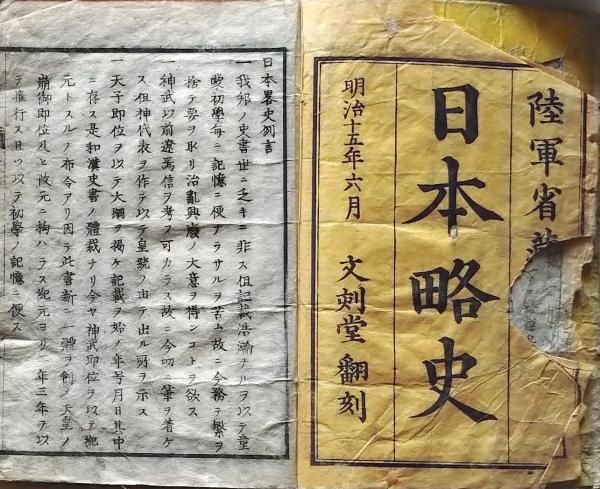 陸軍省蔵
日本略史
明治十五年六月 文刺堂 翻刻
日本畧史例言
一我邦ノ史書世ニ乏キニ非ス但記載浩瀚ナルヲ以テ童
蒙初學毎ニ記憶ニ便ナラサルヲ苦ム故ニ今務テ繁ヲ
捨テ要ヲ取リ治亂興廢ノ大意ヲ得ンコトヲ欲ス
一神武以前遼焉信ヲ考フ可カラス故ニ今叨ニ筆ヲ着ケ
ス但神代表ヲ作テ以テ皇號ノ由テ出ル所ヲ示ス
一天子即位ヲ以テ大綱ヲ掲ケ記載ヲ始メ年号月日其中
ニ存ス是和漢史書ノ體裁ナリ今ヤ神武即位ヲ以テ紀
元トスルノ布令アリ因テ此書新ニ一體ヲ創メ天皇ノ
崩御即位及ヒ改元ニ拘ハラス紀元ヨリ一年二年ヲ以
テ推行ス且ツ以テ初學ノ記憶ニ便ス